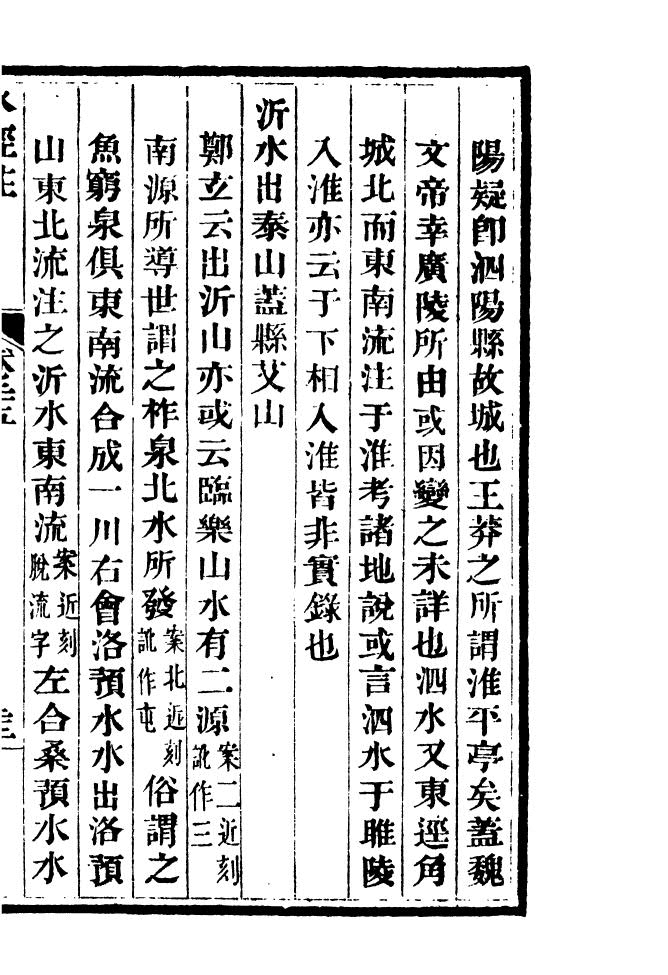 陽疑卽泗陽縣故城也王莽之所謂淮平亭矣蓋魏
文帝幸廣陵所由或因變之未詳也泗水又東逕角
城北而東南流注于淮考諸地說或言泗水于睢陵
入淮亦云于下相入淮皆非實錄也
沂水出泰山蓋縣艾山
鄭玄云出沂山亦或云臨樂山水有二源案二近刻訛作三
南源所導世謂之柞泉北水所發案北近刻訛作屯俗謂之
魚窮泉俱東南流合成一川右會洛預水水出洛預
山東北流注之沂水東南流案近刻脫流字左合桑預水水
水經注